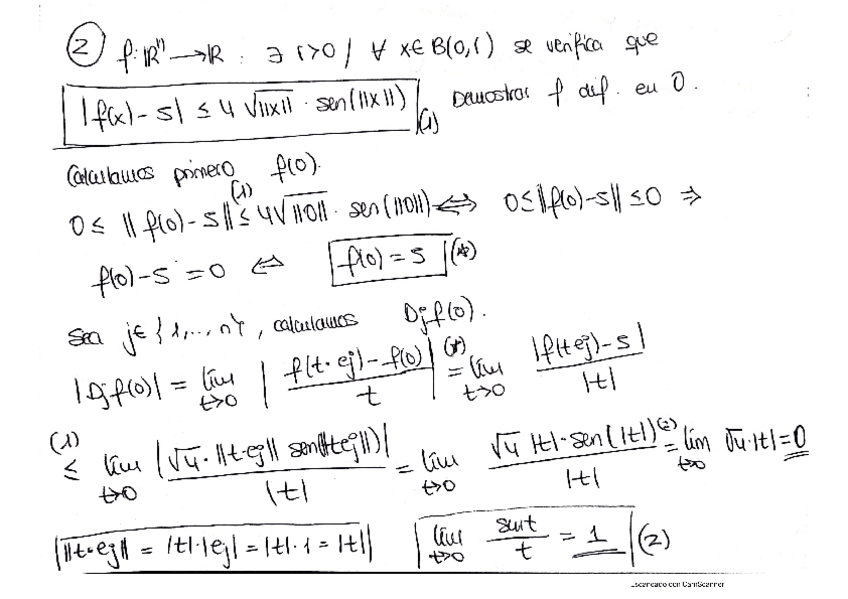 ② f: ℝⁿ → ℝ : ∃ r>0 / ∀ x∈B(0,r) se verifica que
|f(x)-5| ≤ 4 √||x|| · sen(||x||) (1) Demostrar f dif. en 0.
Calculamos primero f(0).
0 ≤ ||f(0)-5|| ≤(1) 4√||0|| · sen(||0||) ⟺ 0≤||f(0)-5|| ≤0 ⇒
f(0)-5 = 0 ⟺ f(0) = 5 (*)
Sea j∈{1,...,n}, calculamos Djf(0).
|Djf(0)| = lím t→0 | (f(t·ej)-f(0))/t | (*)= lím t→0 |f(tej)-5|/|t|
(1) ≤ lím t→0 |√4·||t·ej|| sen(||tej||)|/|t| = lím t→0 √4 |t|·sen(|t|)/|t| (2)= lím t→0 √4·|t| = 0
||t·ej|| = |t|·|ej| = |t|·1 = |t| lím t→0 sint/t = 1 (2)
Escaneado con CamScanner